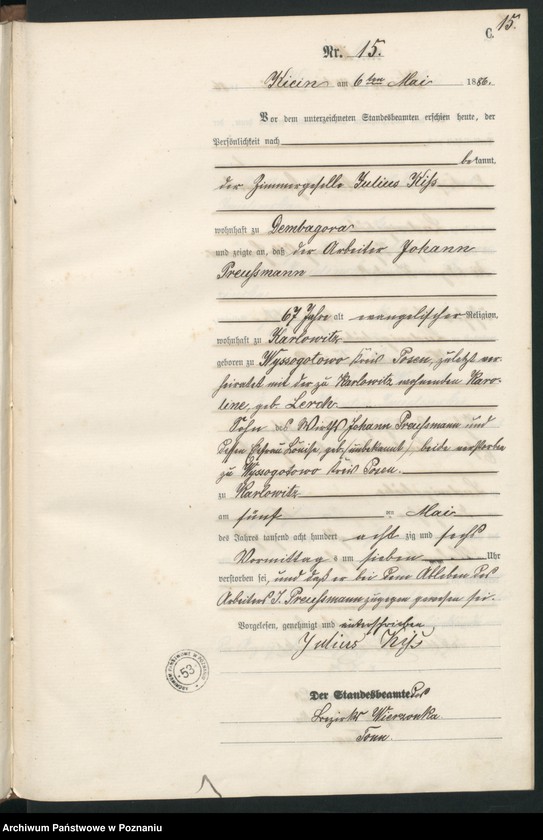 C. 15.
Nr. 15.
Kicin am 6ten Mai 1886.
Vor dem unterzeichneten Standesbeamten erschien heute, der
Persönlichkeit nach
bekannt,
der Zimmergeselle Julius Kiß
wohnhaft zu Dembagora
und zeigte an, daß der Arbeiter Johann
Preußmann
67 Jahre alt evangelischer Religion,
wohnhaft zu Karlowitz
geboren zu Wyssogotowo Kreis Posen, zuletzt ver-
heiratet mit der zu Karlowitz wohnenden Karo-
line, geb. Lerch
Sohn des Wirths Johann Preußmann und
dessen Ehefrau Louise, geb. (unbekannt) beide verstorben
zu Wyssogotowo Kreis Posen.
zu Karlowitz
am fünf ten Mai
des Jahres tausend acht hundert acht zig und sechs
Vormittags um sieben Uhr
verstorben sei, und daß er bei dem Ableben des
Arbeiters J. Preußmann zugegen gewesen sei.
Vorgelesen, genehmigt und unterschrieben
Julius Kiß
Der Standesbeamte des
Bezirks Wierzonka
Tonn.
ARCHIWUM PAŃSTWOWE W POZNANIU
53
Archiwum Państwowe w Poznaniu
szukajwarchiwach.pl